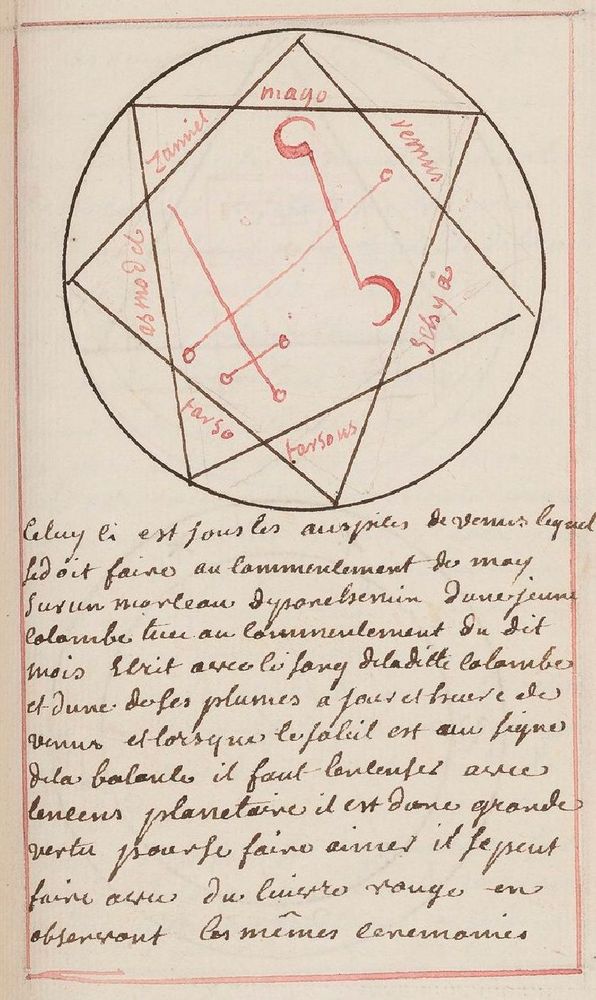 mago
zamiel
venus
asmodel
Sehya
tarso
tarsous
Celuy ci est sous les auspices de venus lequel
se doit faire au commencement de may
sur un morceau dyparchemin dune jeune
colombe tuee au commencement du dit
mois Ecrit avec le sang deladitte colombe
et dune de ses plumes a jour et heure de
venus et lorsque le soleil est au signe
dela balance il faut lencenser avec
lencens planetaire il est dune grande
vertu pour se faire aimer il se peut
faire avec du cuivre rouge en
observant les mêmes ceremonies